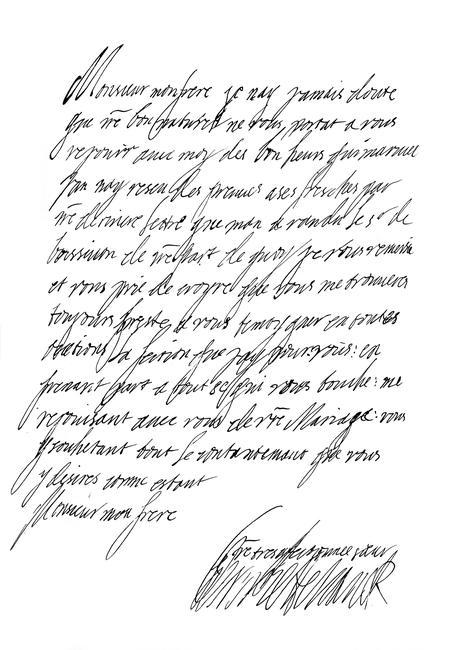 Monsieur mon frere je nay jamais doute
que vre bon naturel ne vous portat a vous
rejouir avec moy des bon heurs qui marivent
jan nay reseu des preuves ases fresches par
vre derniere lestre que man a randu le sr de
de vre part de quoy je vous remersie
et vous prie de croyre que vous me trouveres
toujours preste a vous temoygner en toutes
ocations la fection que jay pour vous: en
prenant part a tout se qui vous touche: me
rejouisant avec vous de vre Mariage: vous
y souhetant tout le contantemant que vous
y desires comme estant
Monsieur mon frere
Vre tres afectionnee seur